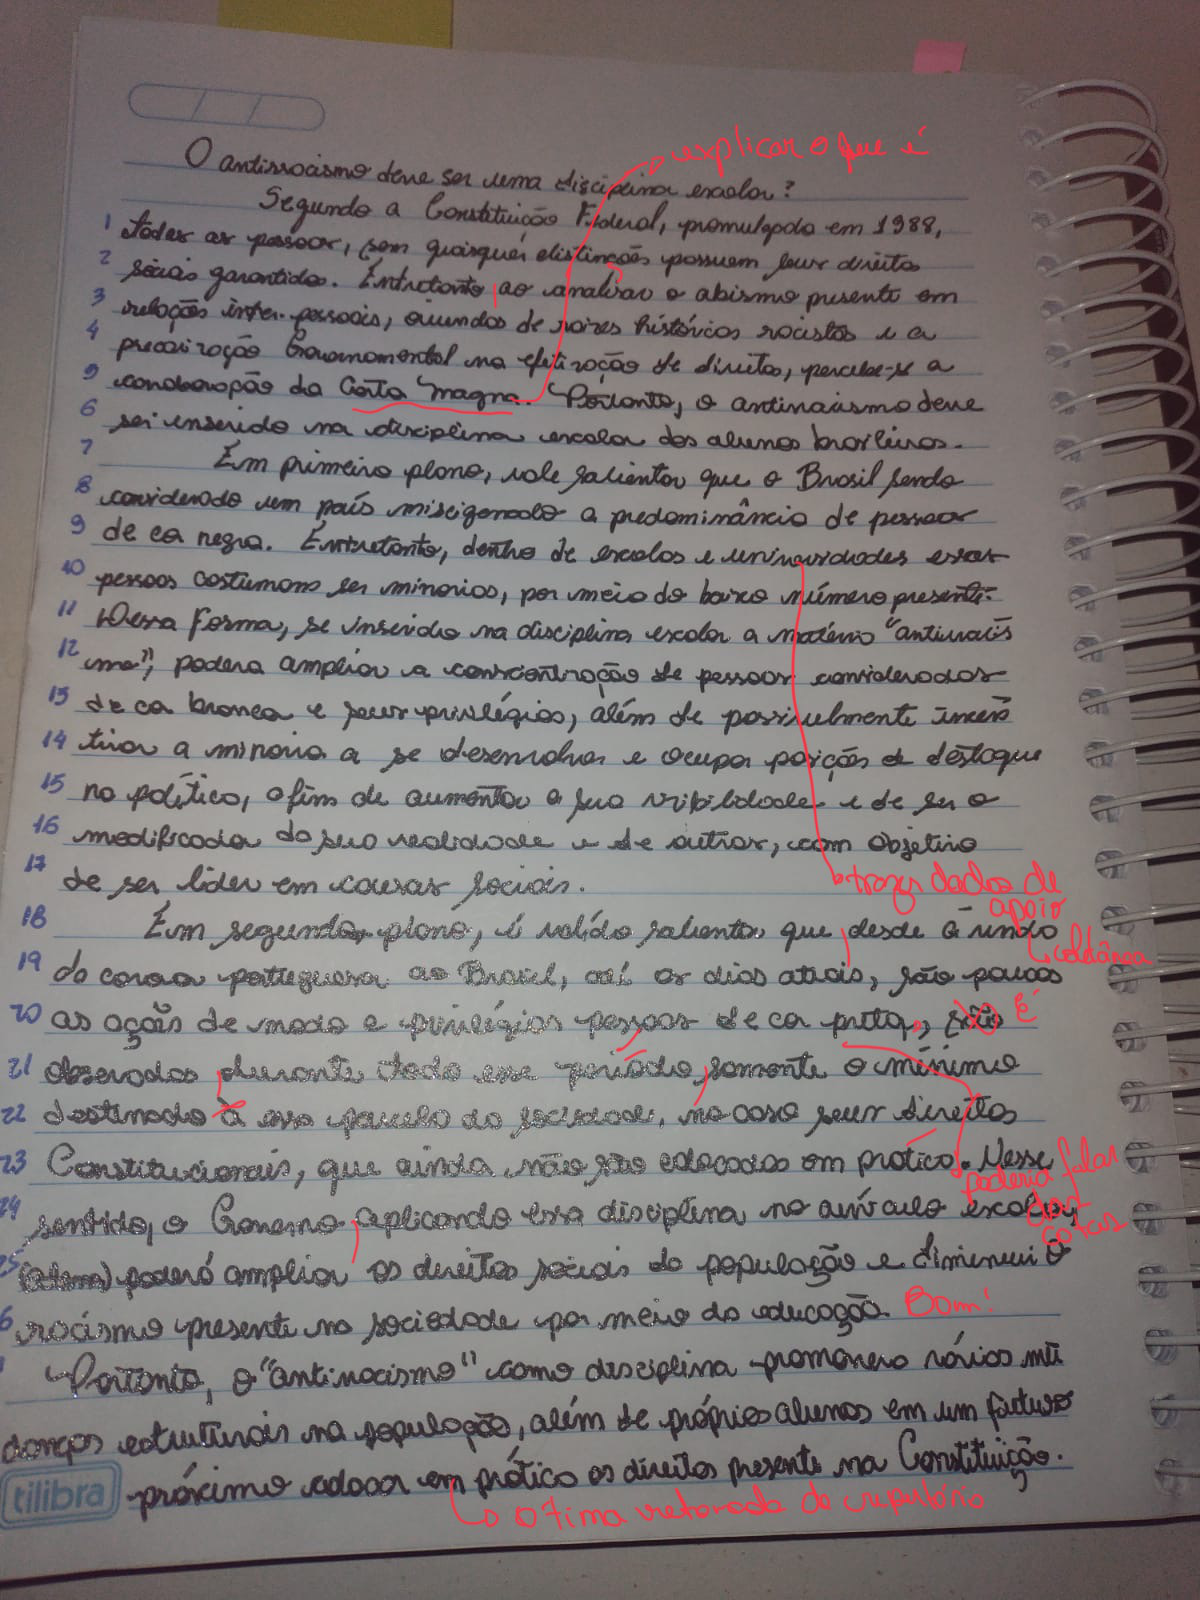 explicar o que é
O antirracismo deve ser uma disciplina escolar?
Segundo a Constituição Federal, promulgada em 1988,
1 todas as pessoas, sem quaisquer distinções possuem seus direitos
2 sociais garantidos. Entretanto ao analisar o abismo presente em
3 relações inter-pessoais, oriundos de raízes históricas racistas e a
4 precarização Governamental na efetivação de direitos, percebe-se a
5 corroboração da Carta Magna. Portanto, o antirracismo deve
6 ser inserido na disciplina escolar dos alunos brasileiros.
7 Em primeiro plano, vale salientar que o Brasil sendo
8 considerado um país miscigenado a predominância de pessoas
9 de cor negra. Entretanto, dentro de escolas e universidades essas
10 pessoas costumam ser minorias, por meio do baixo número presente.
11 Dessa Forma, se inserido na disciplina escolar a matéria "antirracis
12 mo", poderá ampliar a conscientização de pessoas consideradas
13 de cor branca e seus privilégios, além de possivelmente incen
14 tivar a minoria a se desenvolver e ocupar posições de destaque
15 na política, afim de aumentar a sua visibilidade e de ser o
16 modificador da sua realidade e de outras, com objetivo
17 de ser líder em causas sociais.
trazer dados de
apoio
18 Em segundo plano, é válido salientar que desde a vinda
coletânea
19 da coroa portuguesa ao Brasil, até os dias atuais, são poucas
20 as ações de modo a privilégios pessoas de cor preta, são É
21 observados durante todo esse período somente o mínimo
22 destinado à essa parcela da sociedade, no caso seus direitos
23 Constitucionais, que ainda não são colocados em prática. Nesse
poderia falar
24 sentido, o Governo aplicando essa disciplina no currículo escolar,
das
cotas
25 poderá ampliar os direitos sociais da população e diminuir o
6 racismo presente na sociedade por meio da educação. Bom!
Portanto, o "antirracismo" como disciplina promoverá vários mu
danças estruturais na população, além de próprios alunos em um futuro
próximo colocar em prática os direitos presente na Constituição.
tilibra
Ótima retomada do repertório